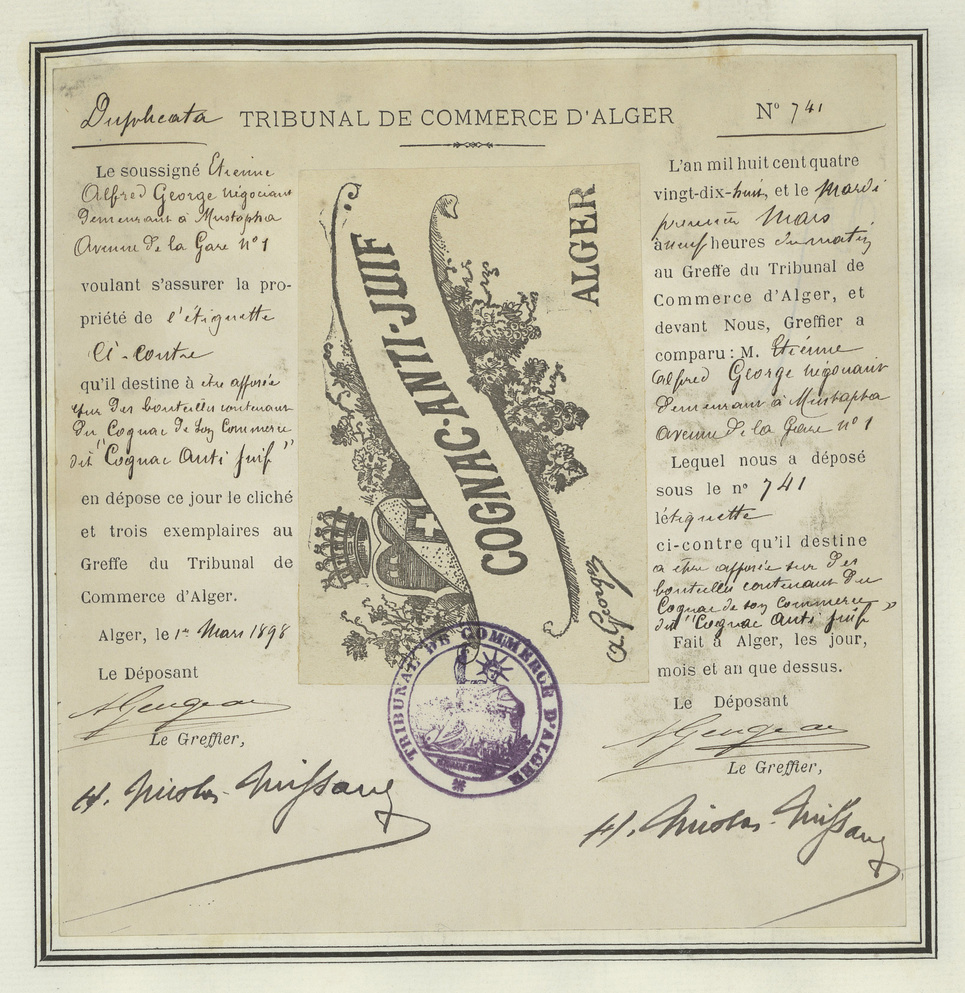 Duplicata
TRIBUNAL DE COMMERCE D'ALGER
Nº 741
Le soussigné Etienne
Alfred George négociant
demeurant à Mustapha
Avenue de la Gare nº 1
voulant s'assurer la pro-
priété de l'étiquette
ci-contre
qu'il destine à être apposée
sur des bouteilles contenant
du Cognac de son Commerce
dit "Cognac Anti Juif"
en dépose ce jour le cliché
et trois exemplaires au
Greffe du Tribunal de
Commerce d'Alger.
Alger, le 1er Mars 1898
Le Déposant
Le Greffier,
COGNAC·ANTI-JUIF
ALGER
A George
TRIBUNAL DE COMMERCE D'ALGER
L'an mil huit cent quatre
vingt-dix-huit, et le Mardi
premier Mars
à neuf heures du matin
au Greffe du Tribunal de
Commerce d'Alger, et
devant Nous, Greffier a
comparu: M. Etienne
Alfred George négociant
demeurant à Mustapha
Avenue de la Gare nº 1
Lequel nous a déposé
sous le nº 741
l'étiquette
ci-contre qu'il destine
a être apposée sur des
bouteilles contenant du
Cognac de son Commerce
dit "Cognac Anti Juif"
Fait à Alger, les jour,
mois et an que dessus.
Le Déposant
Le Greffier,